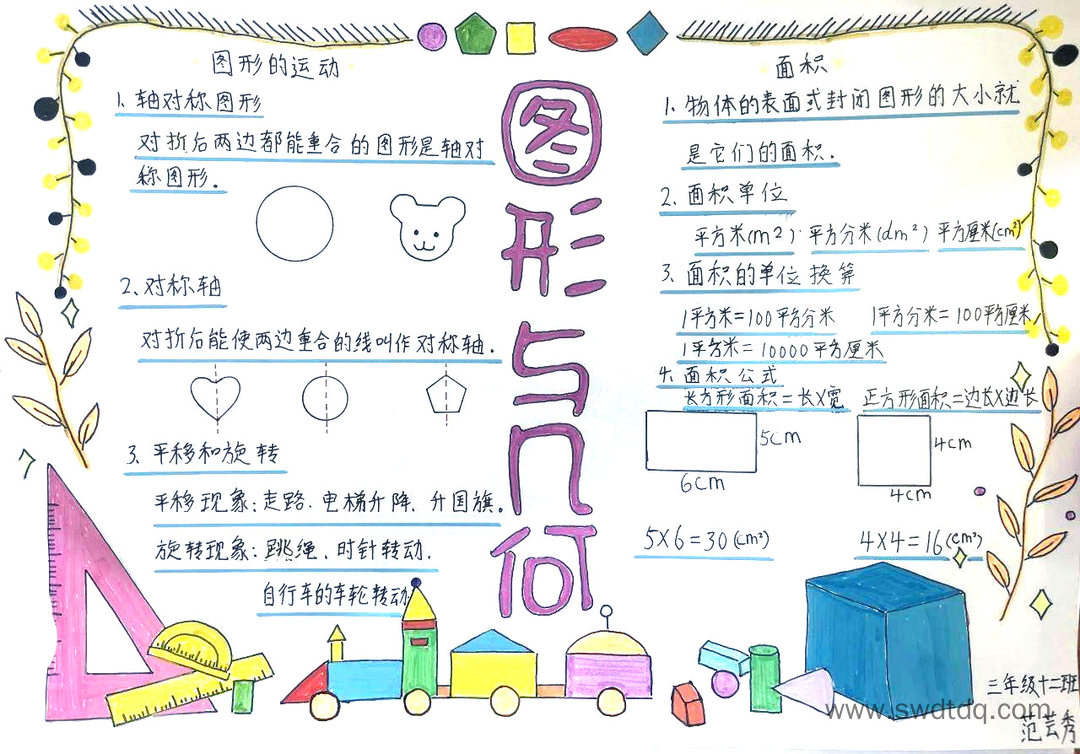 图形的运动
1. 轴对称图形
对折后两边都能重合的图形是轴对
称图形.
2. 对称轴
对折后能使两边重合的线叫作对称轴.
3. 平移和旋转
平移现象：走路、电梯升降、升国旗.
旋转现象：跳绳、时针转动.
自行车的车轮转动
图形与几何
面积
1. 物体的表面或封闭图形的大小就
是它们的面积.
2. 面积单位
平方米(m²) 平方分米(dm²) 平方厘米(cm²)
3. 面积的单位换算
1平方米=100平方分米 1平方分米=100平方厘米
1平方米=10000平方厘米
4. 面积公式
长方形面积=长×宽 正方形面积=边长×边长
5cm
6cm
4cm
4cm
5×6=30(cm²) 4×4=16(cm²)
三年级十二班
范芸秀
www.swdtdq.com